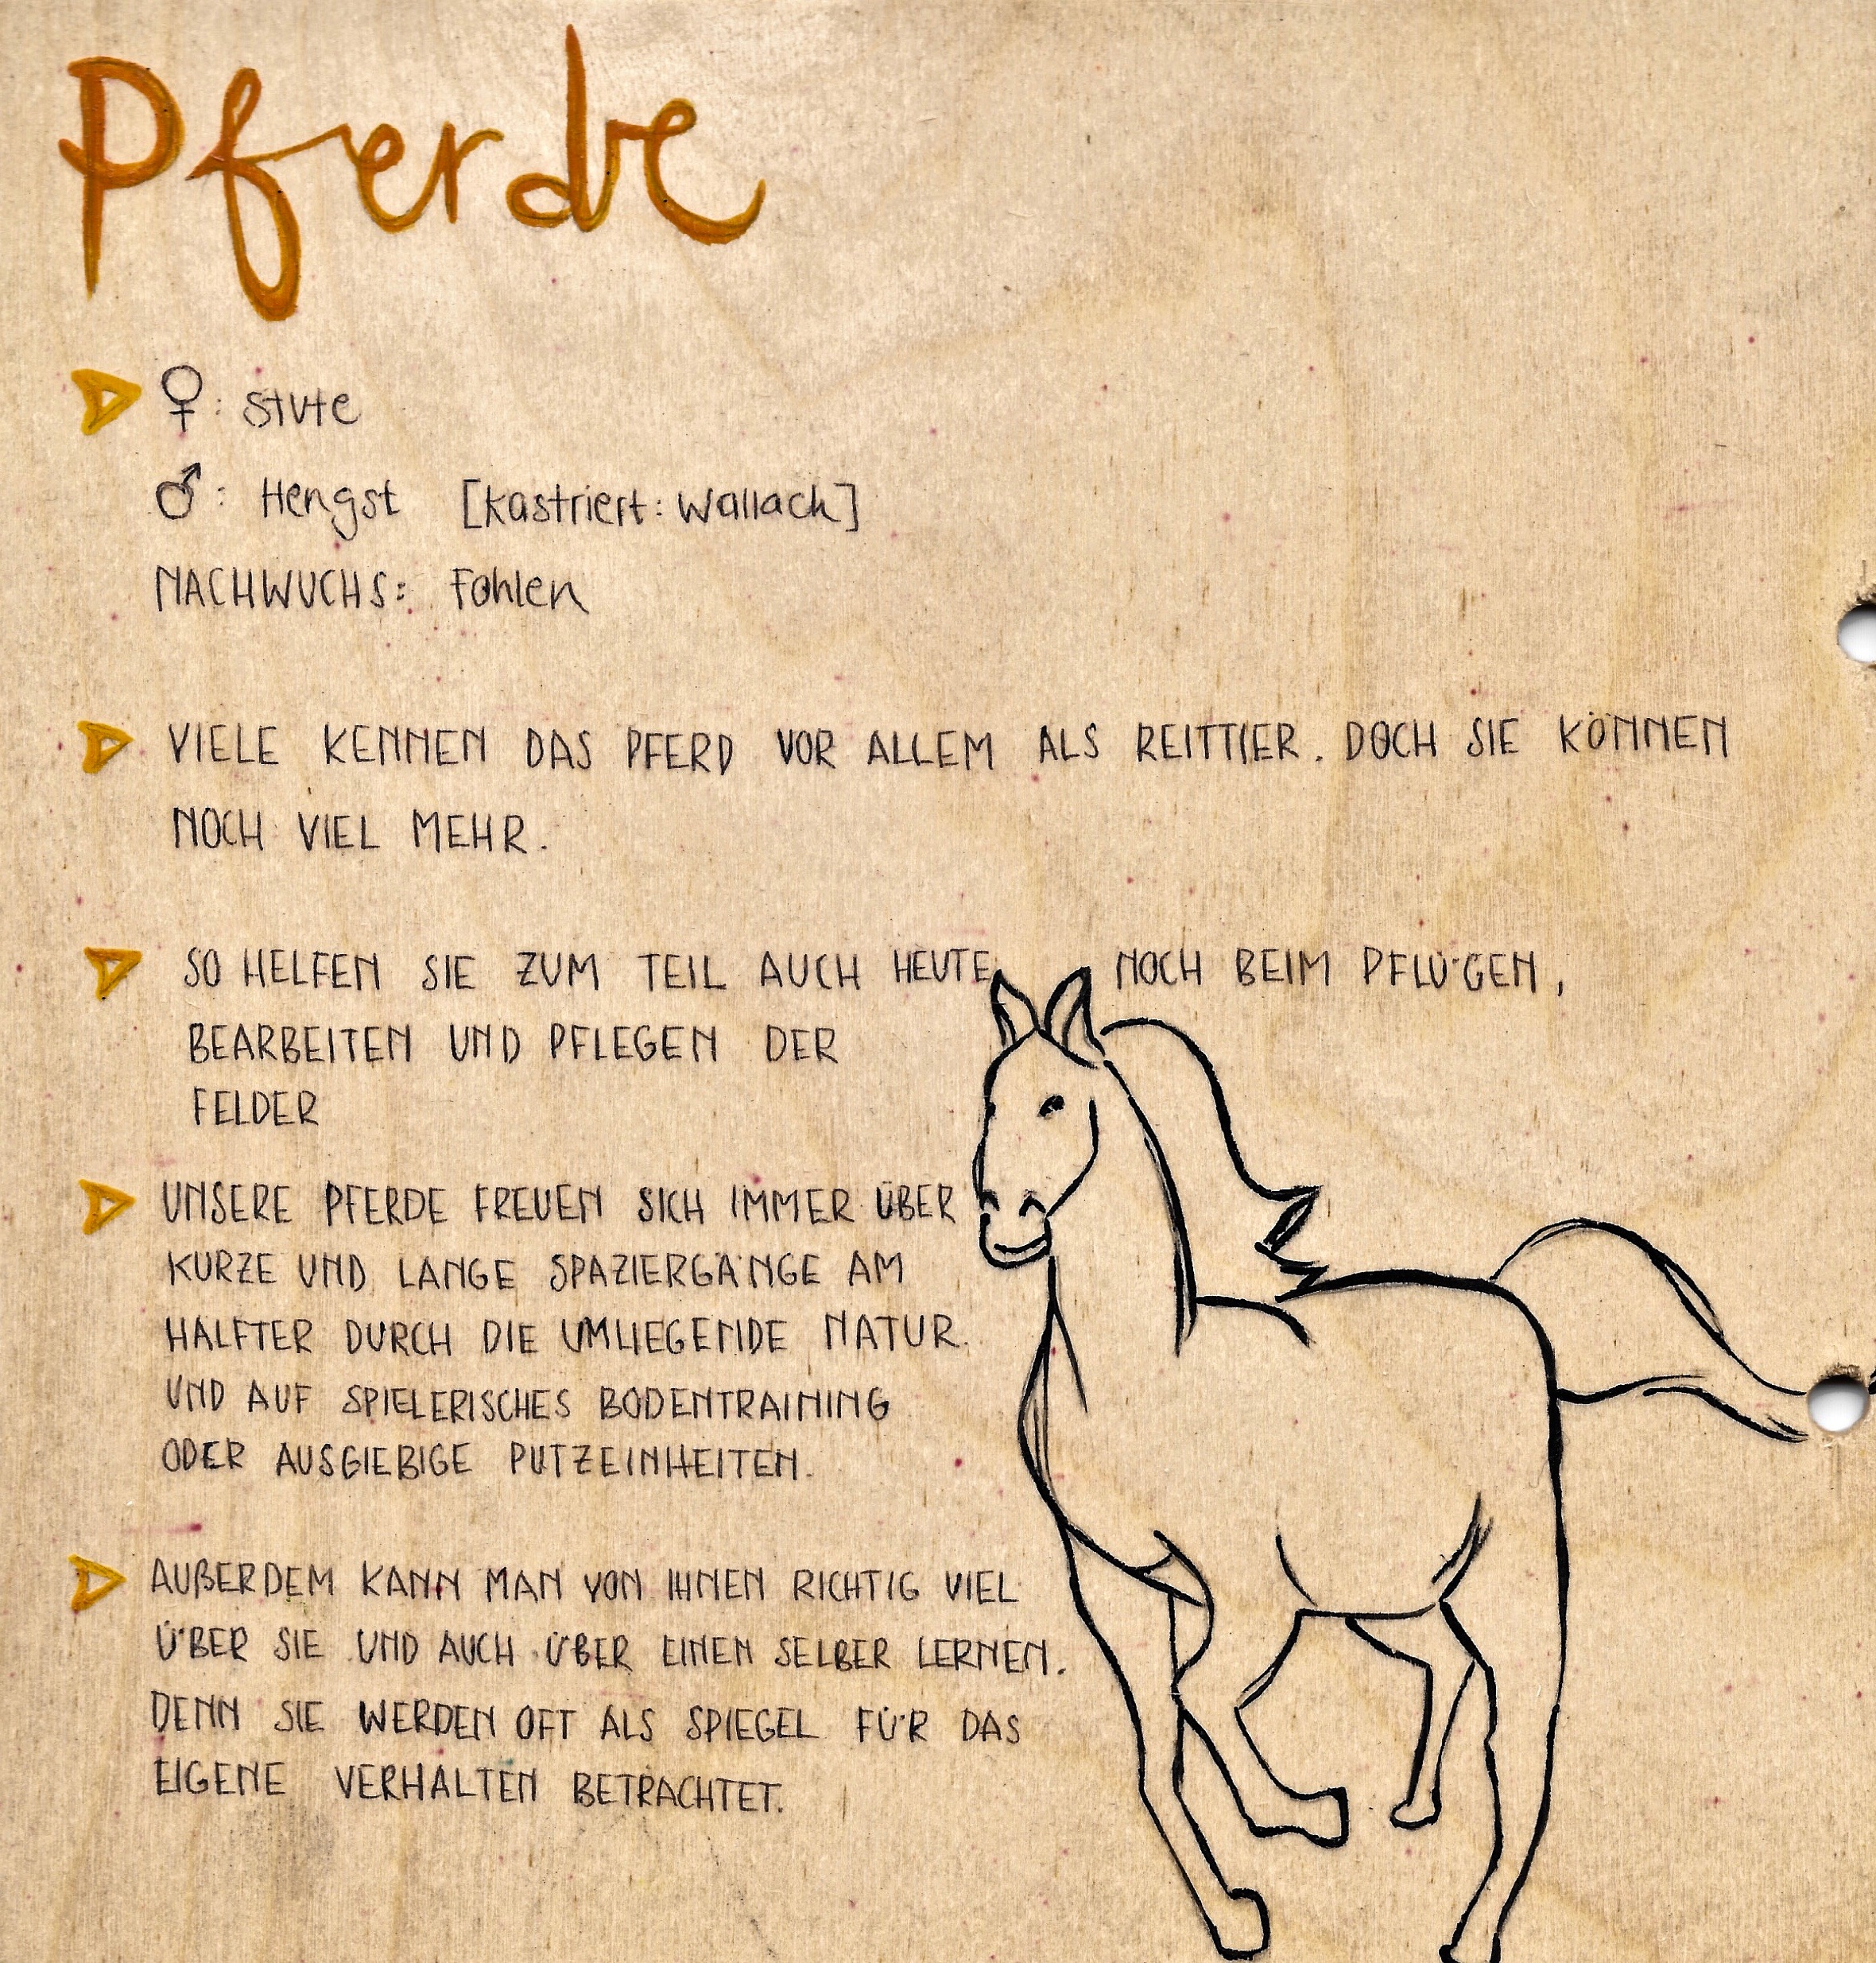 Pferde
♀: Stute
♂: Hengst [kastriert: Wallach]
NACHWUCHS: Fohlen
VIELE KENNEN DAS PFERD VOR ALLEM ALS REITTIER. DOCH SIE KÖNNEN
NOCH VIEL MEHR.
SO HELFEN SIE ZUM TEIL AUCH HEUTE NOCH BEIM PFLÜGEN,
BEARBEITEN UND PFLEGEN DER
FELDER
UNSERE PFERDE FREUEN SICH IMMER ÜBER
KURZE UND LANGE SPAZIERGÄNGE AM
HALFTER DURCH DIE UMLIEGENDE NATUR.
UND AUF SPIELERISCHES BODENTRAINING
ODER AUSGIEBIGE PUTZEINHEITEN.
AUßERDEM KANN MAN VON IHNEN RICHTIG VIEL
ÜBER SIE UND AUCH ÜBER EINEN SELBER LERNEN.
DENN SIE WERDEN OFT ALS SPIEGEL FÜR DAS
EIGENE VERHALTEN BETRACHTET.